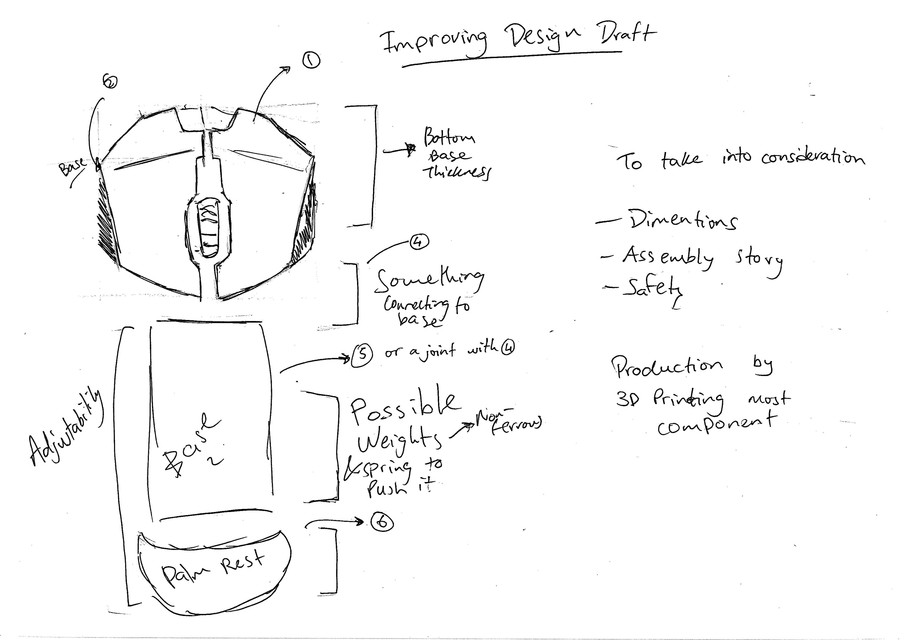 Improving Design Draft
①
Base
Bottom
Base
Thickness
④
Something
Connecting to
base
⑤ or a joint with ④
Adjustability
Base
2
Possible
Weights
Non-
ferrous
& spring to
Push it
⑥
Palm Rest
To take into consideration
— Dimentions
- Assembly story
- Safety
Production by
3D Printing most
component